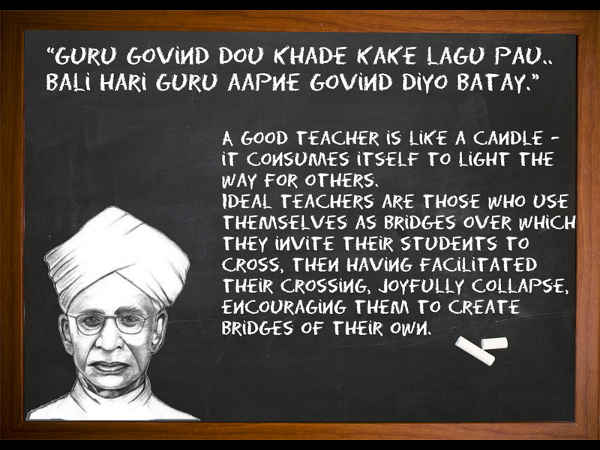 “GURU GOVIND DOU KHADE KAKE LAGU PAU..
BALI HARI GURU AAPNE GOVIND DIYO BATAY.”
A GOOD TEACHER IS LIKE A CANDLE -
IT CONSUMES ITSELF TO LIGHT THE
WAY FOR OTHERS.
IDEAL TEACHERS ARE THOSE WHO USE
THEMSELVES AS BRIDGES OVER WHICH
THEY INVITE THEIR STUDENTS TO
CROSS, THEN HAVING FACILITATED
THEIR CROSSING, JOYFULLY COLLAPSE,
ENCOURAGING THEM TO CREATE
BRIDGES OF THEIR OWN.